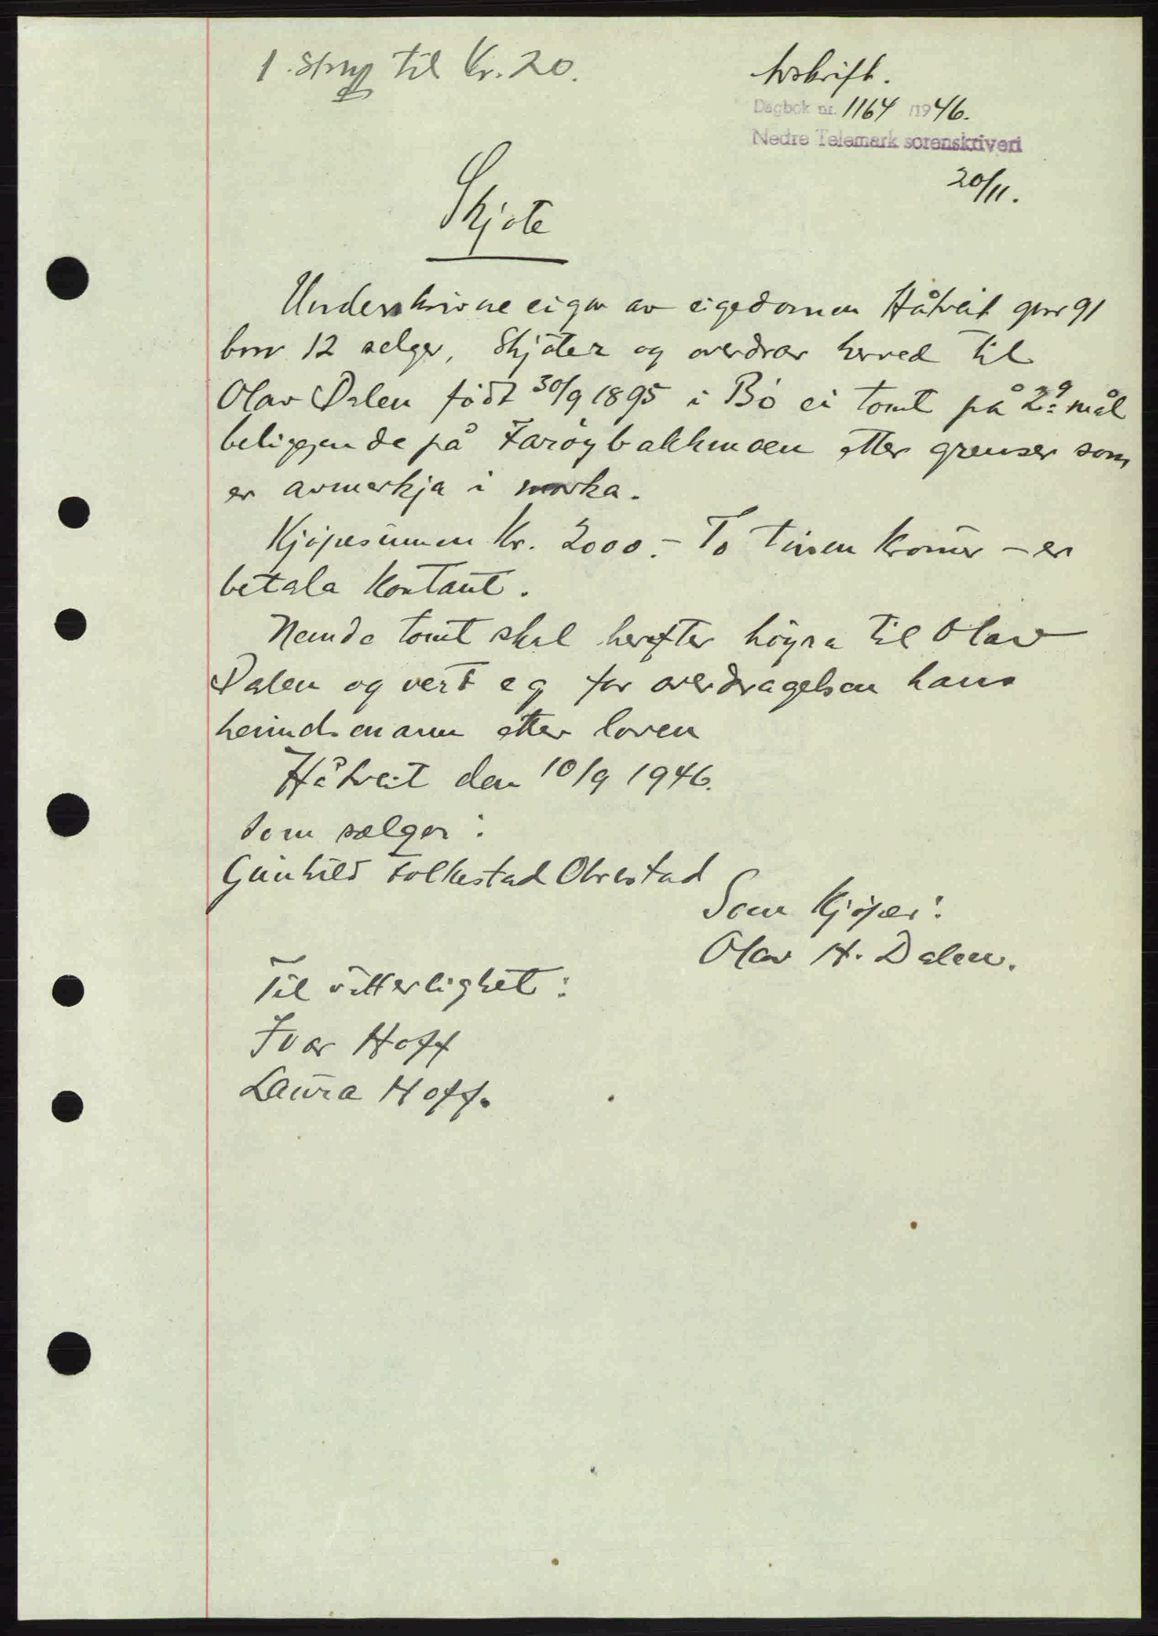 1. Stmp til Kr. 20.
Avskrift.
Dagbok nr. 1164 /1946.
Nedre Telemark sorenskriveri
20/11.
Skjöte
Underskrivne eigar av eigedomen Håtveit gnr 91
bnr 12 selger, Skjöter og overdrar herved til
Olav Dalen födt 30/9 1895 i Bö ei tomt på 2.9 mål
beliggende på Faröybakkmoen etter grenser som
er avmerkja i marka.
Kjöpesummen Kr. 2000.- To tusen kroner - er
betala kontant.
Nemde tomt skal herefter höyra til Olav
Dalen og vert eg for overdragelsen hans
heimdsmann etter loven
Håtveit den 10/9 1946.
Som sælger:
Gunhild Folkestad Olvestad
Som Kjöper:
Olav H. Dalen.
Til vitterlighet:
Ivar Hoff
Laura Hoff.